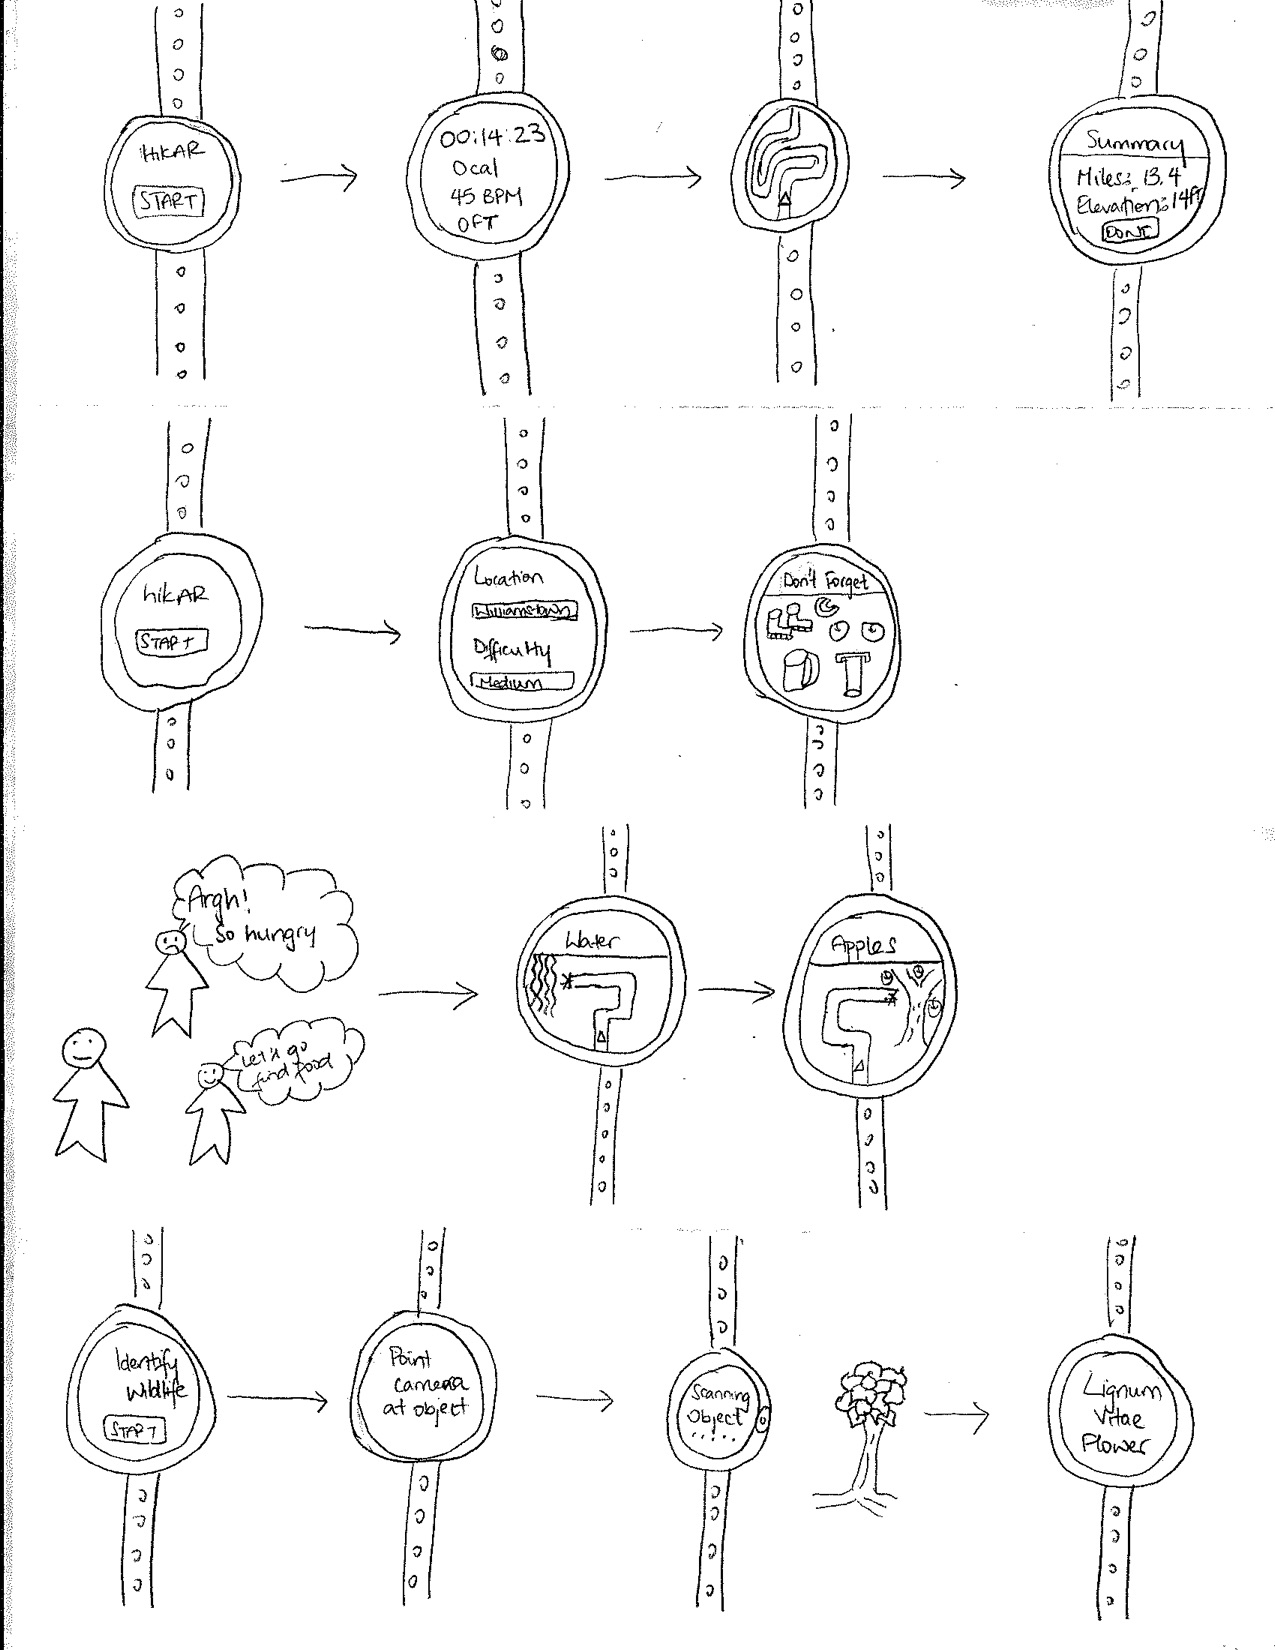 HikAR
START
00:14:23
0cal
45 BPM
0FT
Summary
Miles: 13.4
Elevation: 14ft
DONE
hikAR
START
Location
Williamstown
Difficulty
Medium
Don't Forget
Argh!
So hungry
Let's go
find food
Water
Apples
Identify
Wildlife
START
Point
camera
at object
Scanning
Object
.....
Lignum
Vitae
Flower